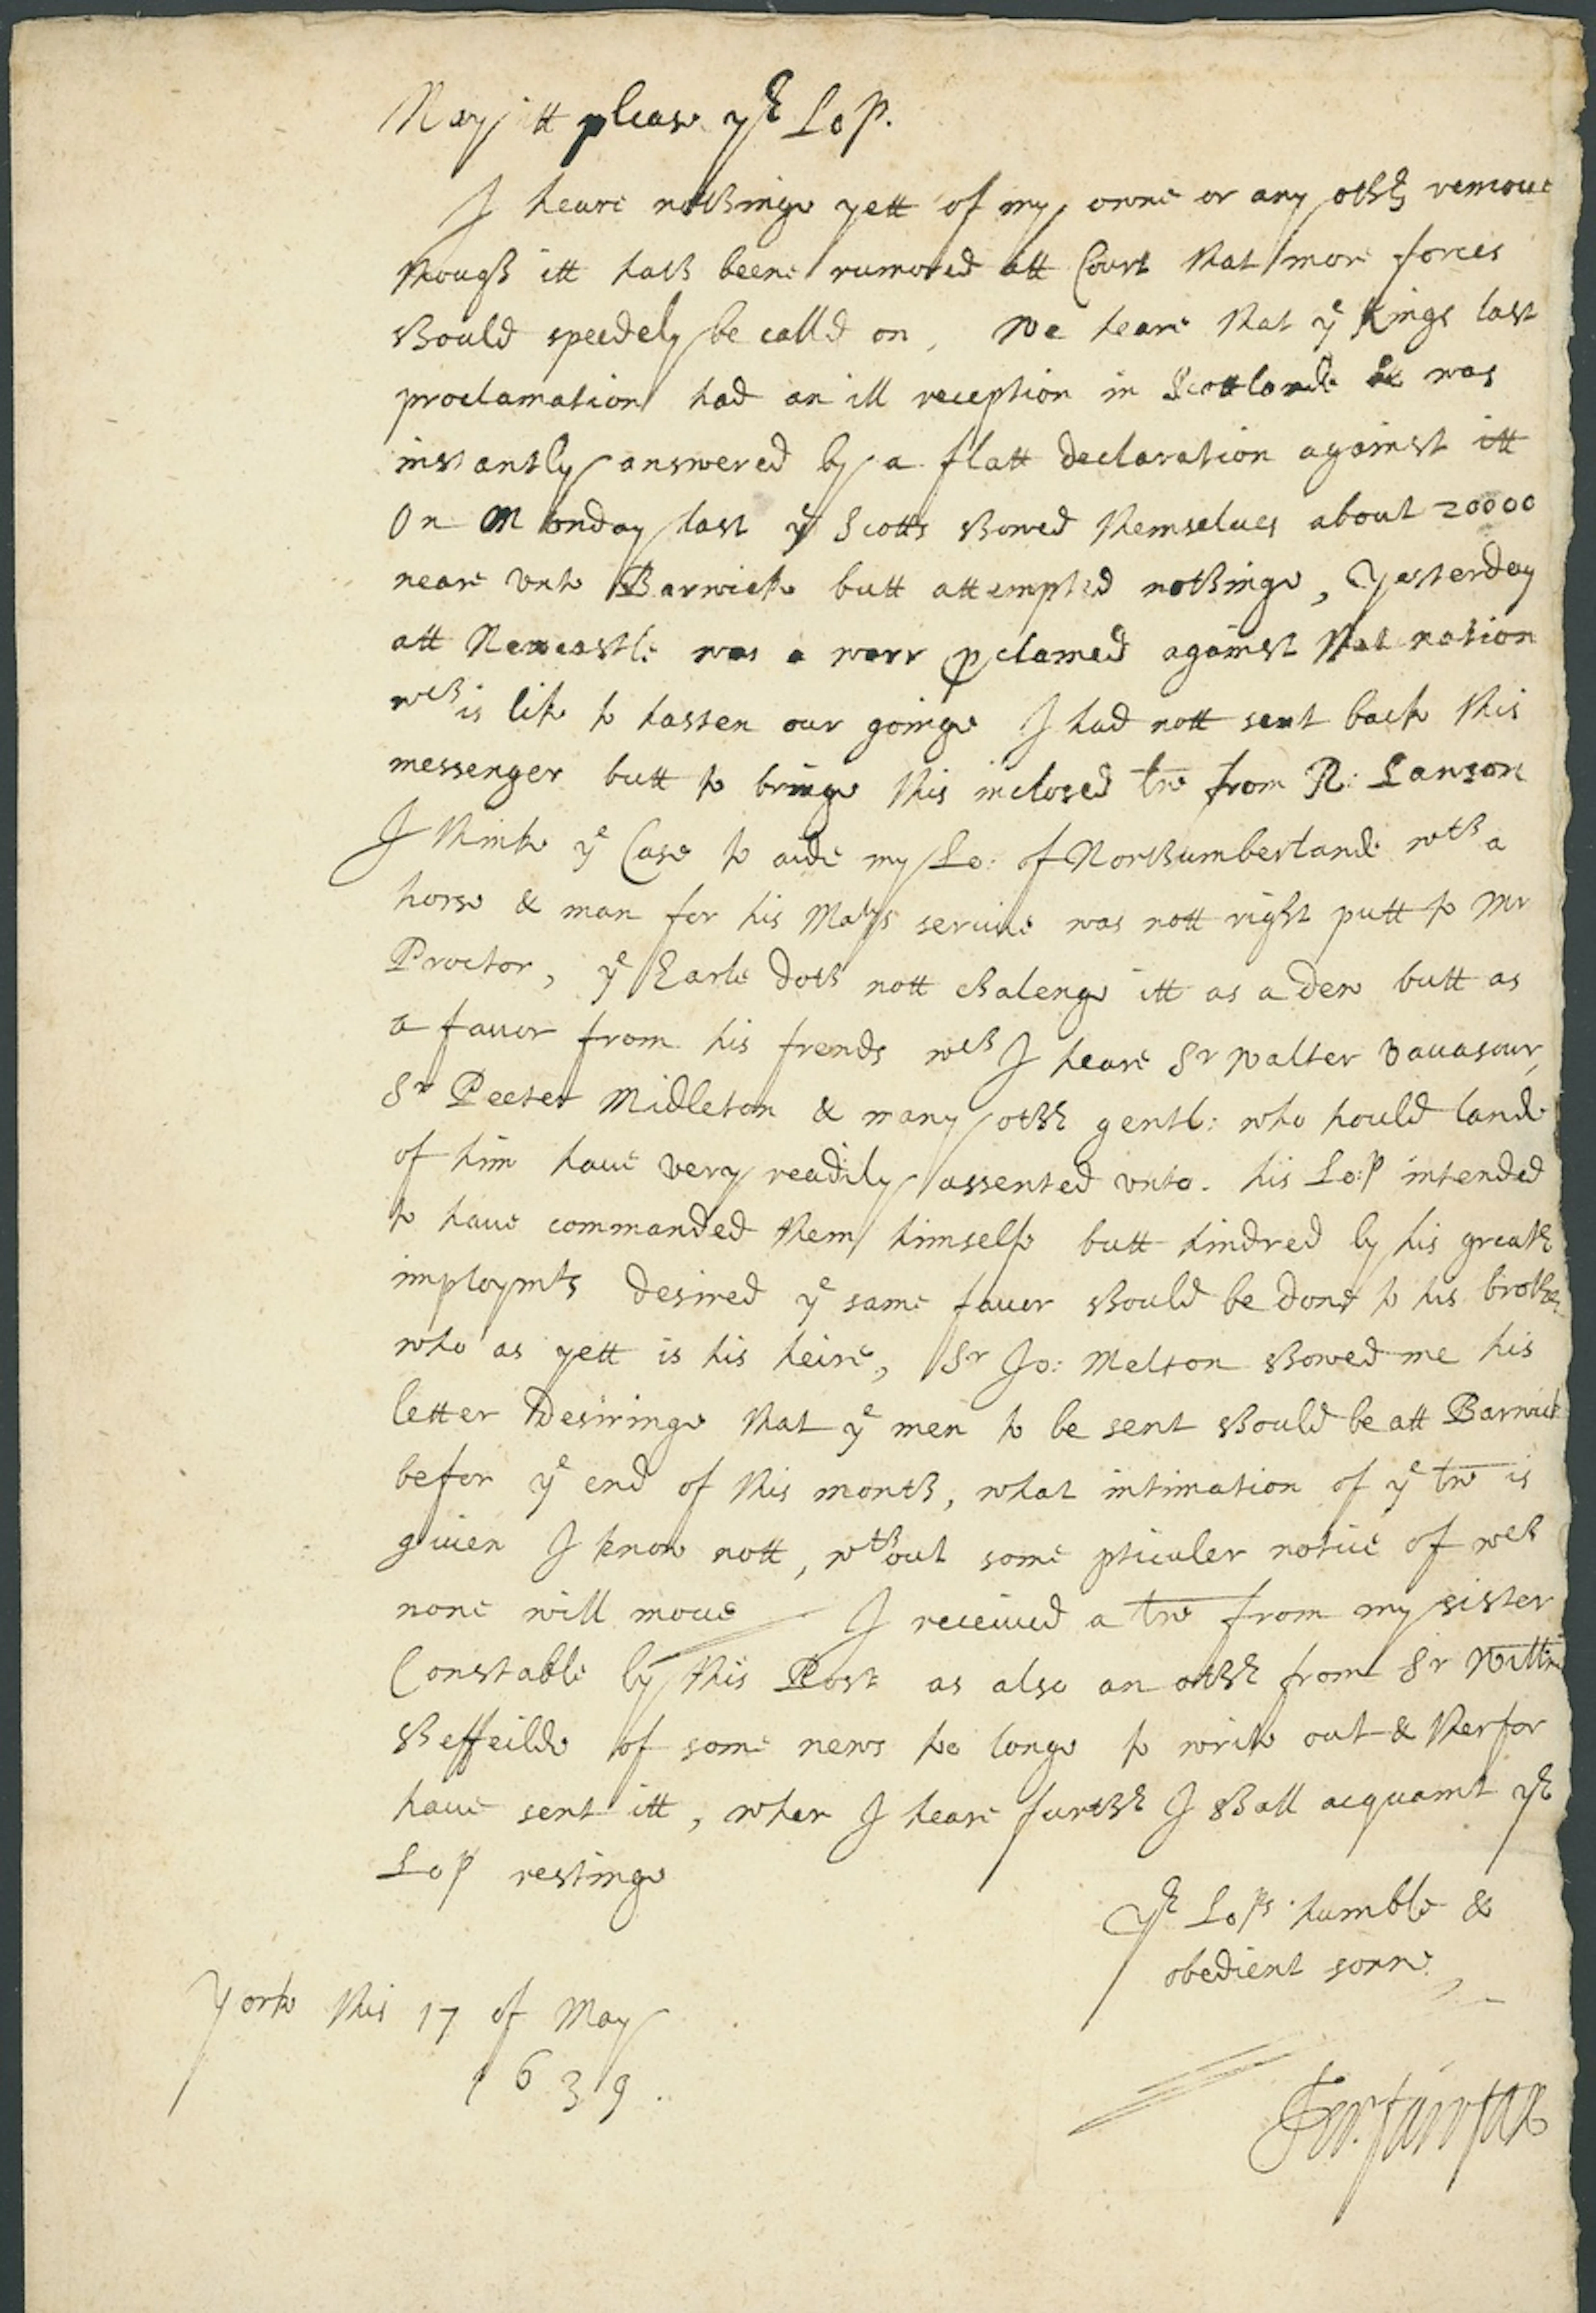 May itt please yr Lo:p.
I heare nothinge yett of my owne or any othr remoue
though itt hath beene rumored att Court that more forces
should speedely be calld on, We heare that ye Kings last
proclamation had an ill reception in Scottlande & was
instantly answered by a flatt declaration against itt
On Monday last ye Scotts shewed themselues about 20000
neare vnto Barwicke butt attempted nothinge, Yesterday
att Newcastle was a warr pclamed against that nation
wch is like to hasten our goinge I had nott sent back this
messenger butt to bringe this inclosed tre from R: Lawson
I thinke ye Case to aide my Lo: of Northumberlande wth a
horse & man for his Matys seruice was nott right putt to Mr
Proctor, ye Earle doth nott chalenge itt as a dew butt as
a fauor from his frends wch I heare Sr Walter Vauasour,
Sr Peeter Midleton & many othr gentl: who hould lande
of him haue very readily assented vnto. his Lo:p intended
to haue commanded them himselfe butt hindred by his greatr
imploymts desired ye same fauor should be done to his brothr
who as yett is his heire, Sr Jo: Melton shewed me his
letter desiringe that ye men to be sent should be att Barwick
befor ye end of this month, what intimation of ye tre is
giuen I know nott, wthout some pticuler notice of wch
none will moue I receiued a tre from my sister
Constable by this Post as also an othr from Sr Willm
Sheffeilde of some news to longe to write out & therfor
haue sent itt, when I heare furthr I shall acquaint yr
Lo:p restinge
Yr Lo:ps humble &
obedient sonne
Yorke this 17 of May
1639.
Fer: fairfax